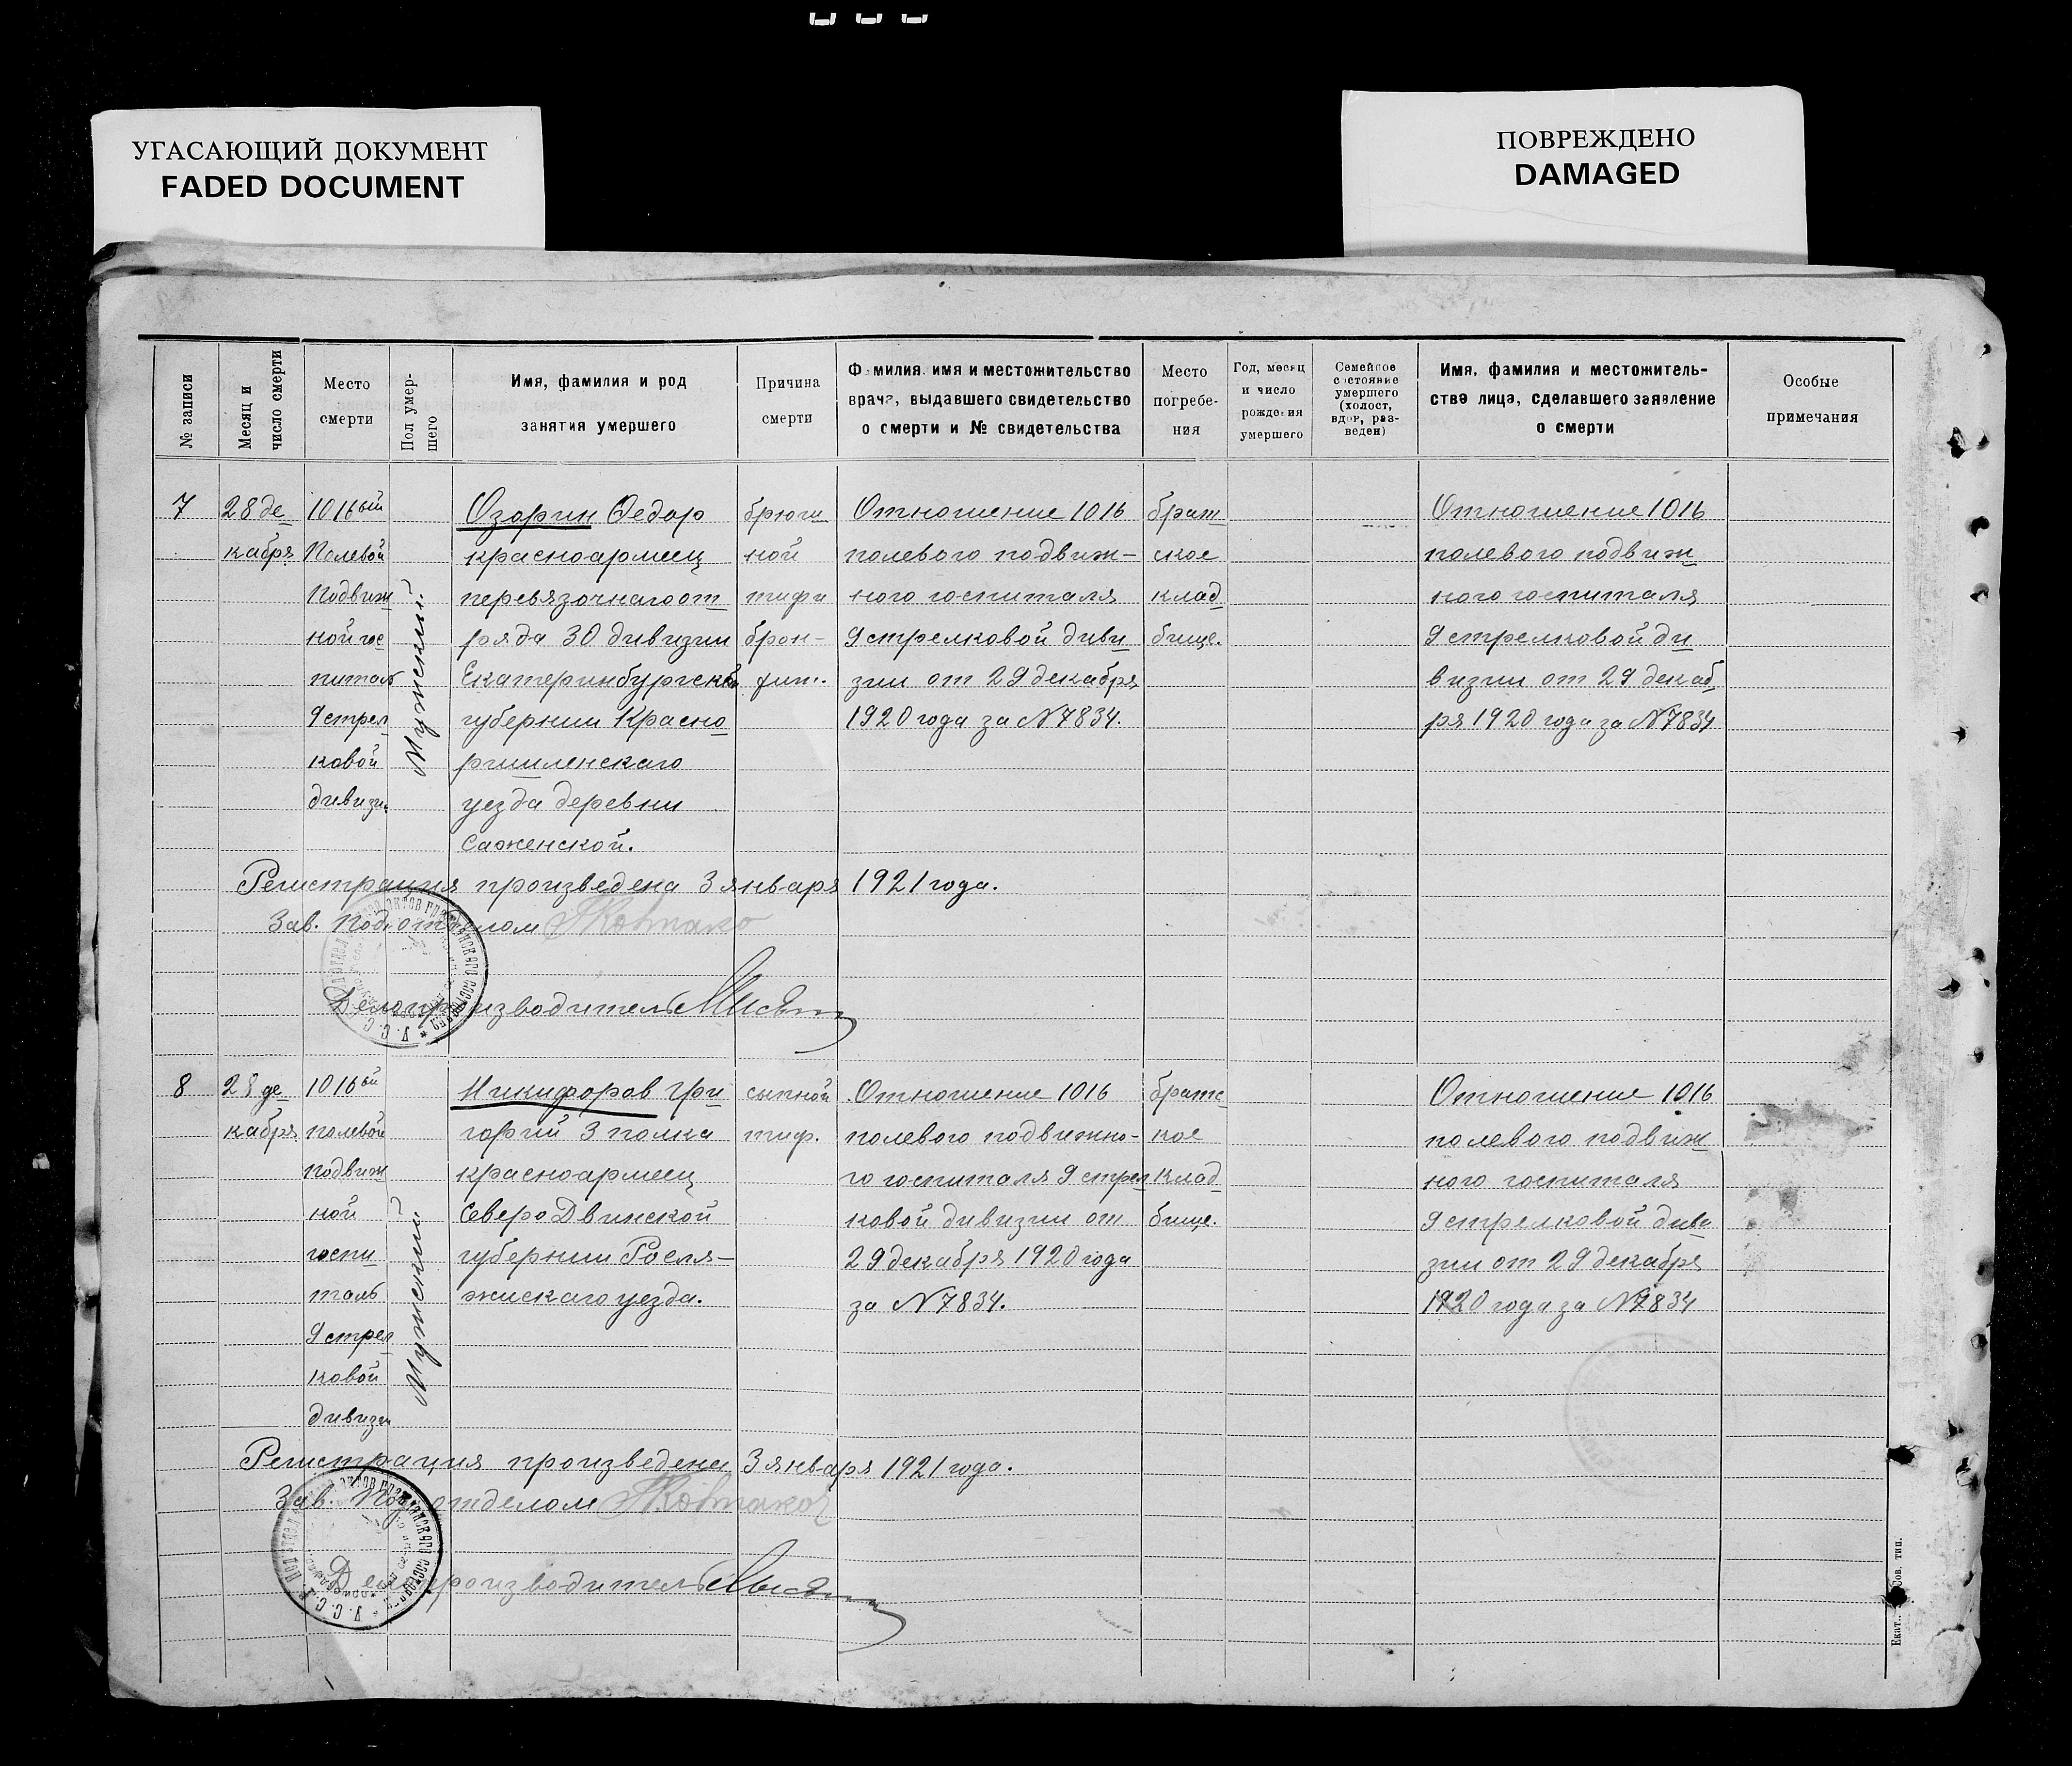 УГАСАЮЩИЙ ДОКУМЕНТ
FADED DOCUMENT
ПОВРЕЖДЕНО
DAMAGED
№ записи
Месяц и
число смерти
Место
смерти
Пол умер-
шего
Имя, фамилия и род
занятия умершего
Причина
смерти
Фамилия, имя и местожительство
врача, выдавшего свидетельство
о смерти и № свидетельства
Место
погребе-
ния
Год, месяц
и число
рождения
умершего
Семейное
состояние
умершего
(холост,
вдов, раз-
веден)
Имя, фамилия и местожитель-
ство лица, сделавшего заявление
о смерти
Особые
примечания
7
28 де
кабря
1016ый
Полевой
Подвиж
ной гос
питаль
9 стрел
ковой
дивизи
Мужской
Озорин Федор
красноармеец
перевязочнаго от
ряда 30 дивизии
Екатеринбургской
губернии Красно
уезда деревни
Саженской.
брюш
ной
тифи
брон-
Отношение 1016
полевого подвиж-
ного госпиталя
9 стрелковой диви
зии от 29 декабря
1920 года за №7834.
брат
ское
клад
бище.
Отношение 1016
полевого подвиж
ного госпиталя
9 стрелковой ди
визии от 29 декаб
ря 1920 года за №7834
Регистрация произведена 3 января 1921 года.
Зав. Подотделом
Делопроизводитель
8
28 де
кабря
1016ой
полевой
подвиж
ной
госпи
таль
9 стрел
ковой
дивизи
Мужской
Никифоров Гри
горий 3 полка
красноармеец
Северо Двинской
губернии
уезда.
сыпной
тиф.
Отношение 1016
полевого подвижно-
го госпиталя 9 стрел
ковой дивизии от
29 декабря 1920 года
за №7834.
братс
кое
клад
бище.
Отношение 1016
полевого подвиж
ного госпиталя
9 стрелковой диви
зии от 29 декабря
1920 года за №7834
Регистрация произведена 3 января 1921 года.
Зав. Подотделом
Делопроизводитель
Екат. Сов. тип.